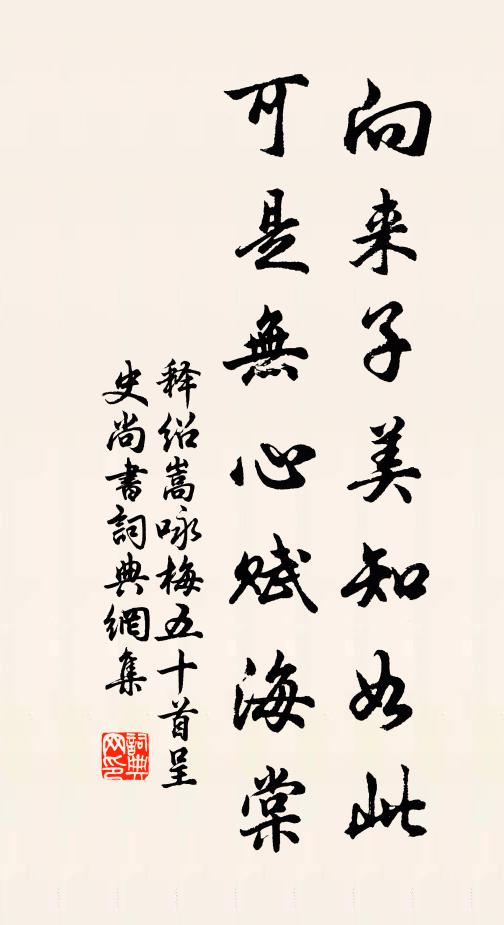 向来子美知如此
可是無心赋海棠
释绍嵩咏梅五十首呈
史尚書詞典網集
詞典
网印